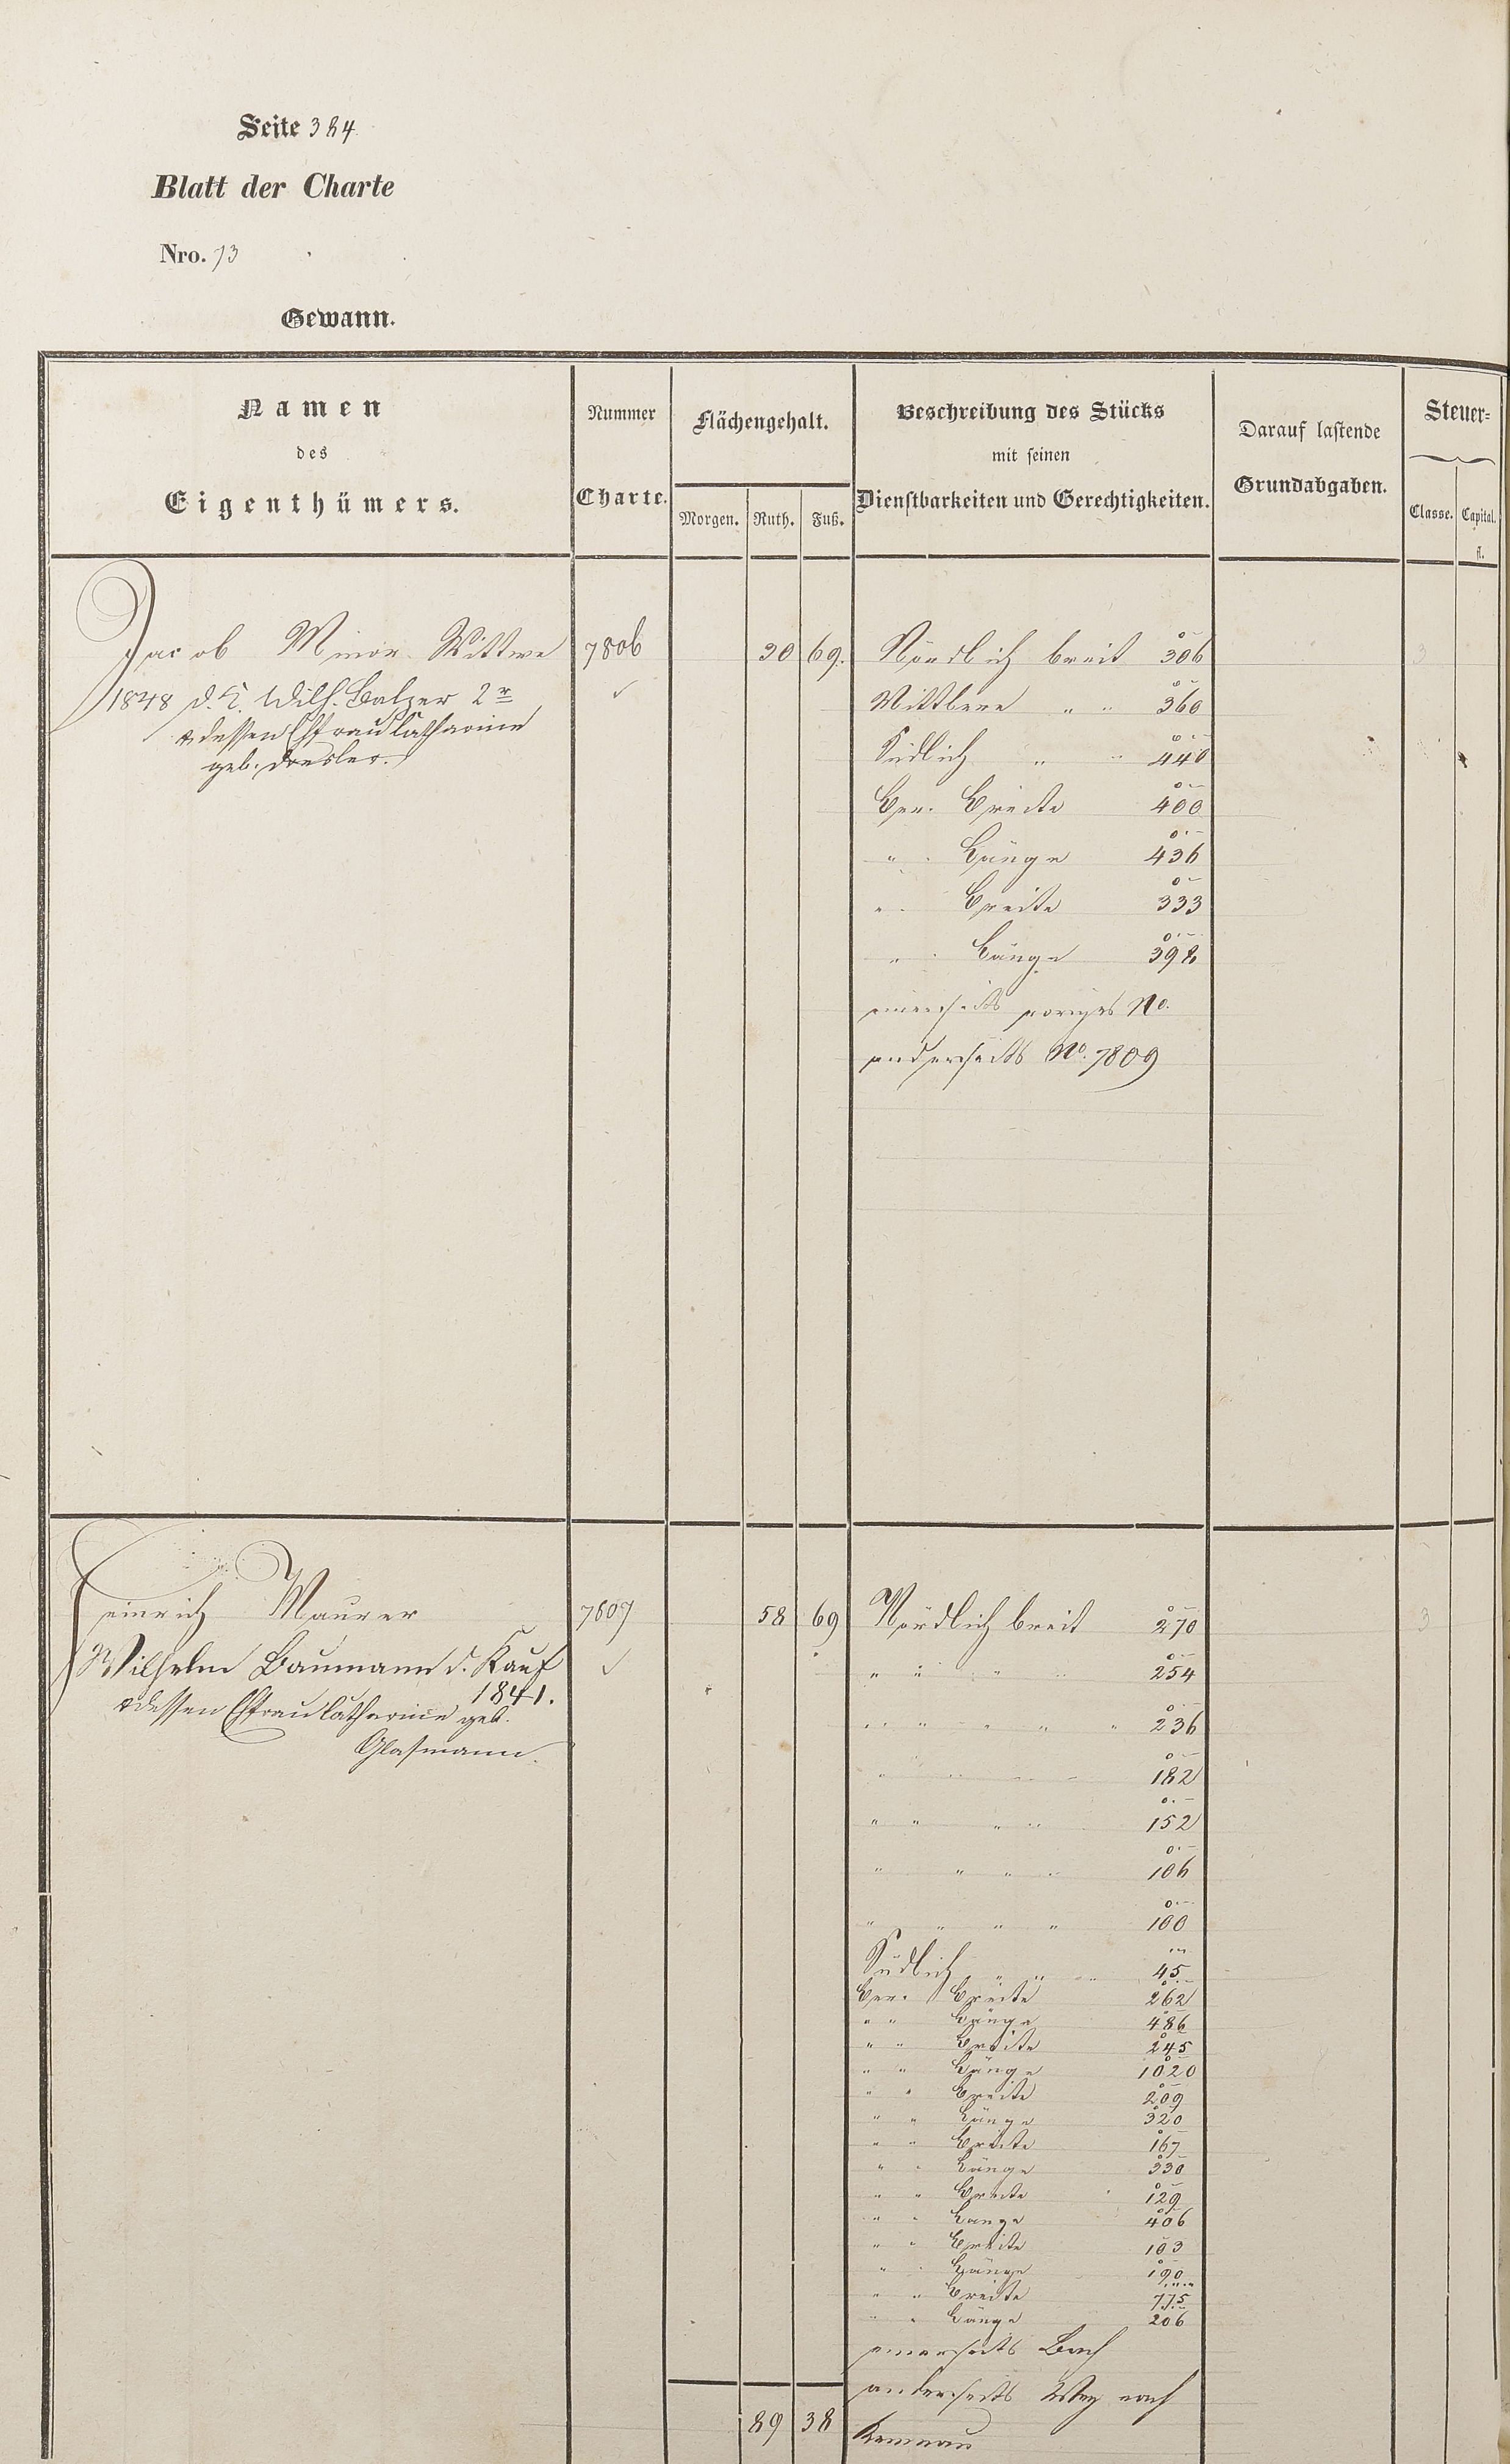 Seite 384
Blatt der Charte
Nro. 73
Gewann.
Namen
des
Eigenthümers.
Nummer
Charte.
Flächengehalt.
Morgen. Ruth. Fuß.
Beschreibung des Stücks
mit seinen
Dienstbarkeiten und Gerechtigkeiten.
Darauf lastende
Grundabgaben.
Steuer=
Classe. Capital.
fl.
Jacob Minor Wittwe 7806 30 69. Nördlich breit 306 3
1848 d. K. Wilh. Balzer 2r ✓ Mittlere " " 360
& dessen Ehfrau Catharine
geb. Dresler.
Südlich " " 440
Ber. Breite 400
" " Länge 436
" " Breite 333
" " Länge 398
einerseits voriges No.
anderseits No. 7809
Heinrich Maurer 7807 58 69 Nördlich breit 270 3
Wilhelm Baumann d. Kauf ✓ " " " " 254
1841.
& dessen Ehfrau Catharine geb.
Glasmann.
" " " " " 236
" " " " 182
" " " " 152
" " " " 106
" " " " 100
Südlich " " " 45
Ber. Breite 262
" " Länge 486
" " Breite 245
" " Länge 1020
" " Breite 209
" " Länge 320
" " Breite 167
" " Länge 330
" " Breite 129
" " Länge 406
" " Breite 103
" " Länge 190
" " Breite 775
" " Länge 206
einerseits Bach
anderseits Weg nach
89 38